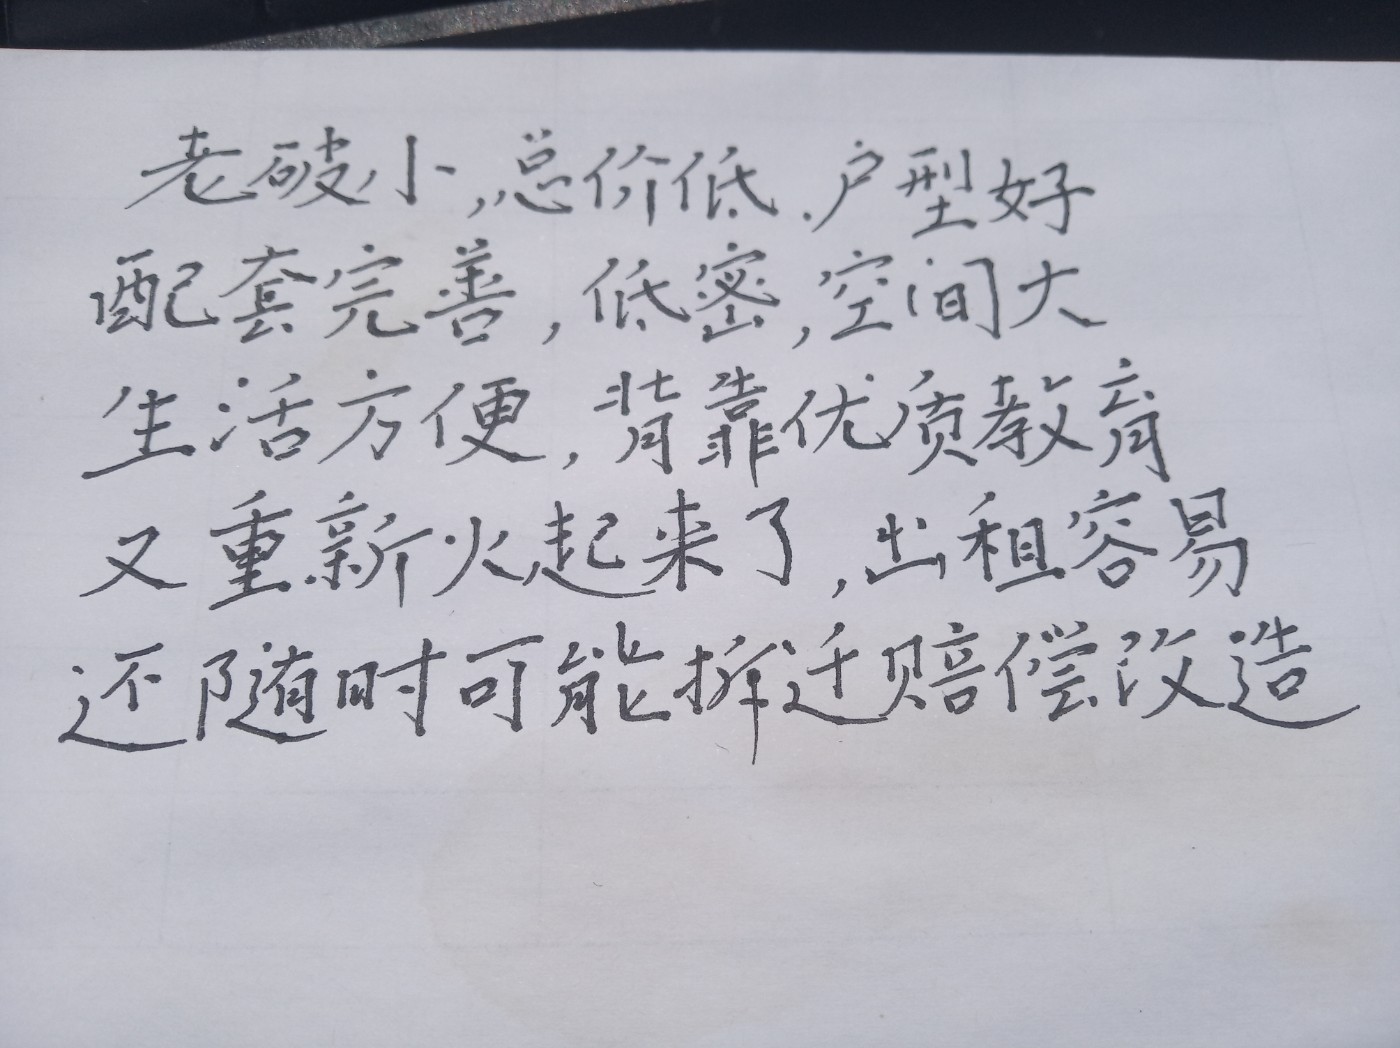 老破小,总价低.户型好
配套完善,低密,空间大
生活方便,背靠优质教育
又重新火起来了,出租容易
还随时可能拆迁赔偿改造